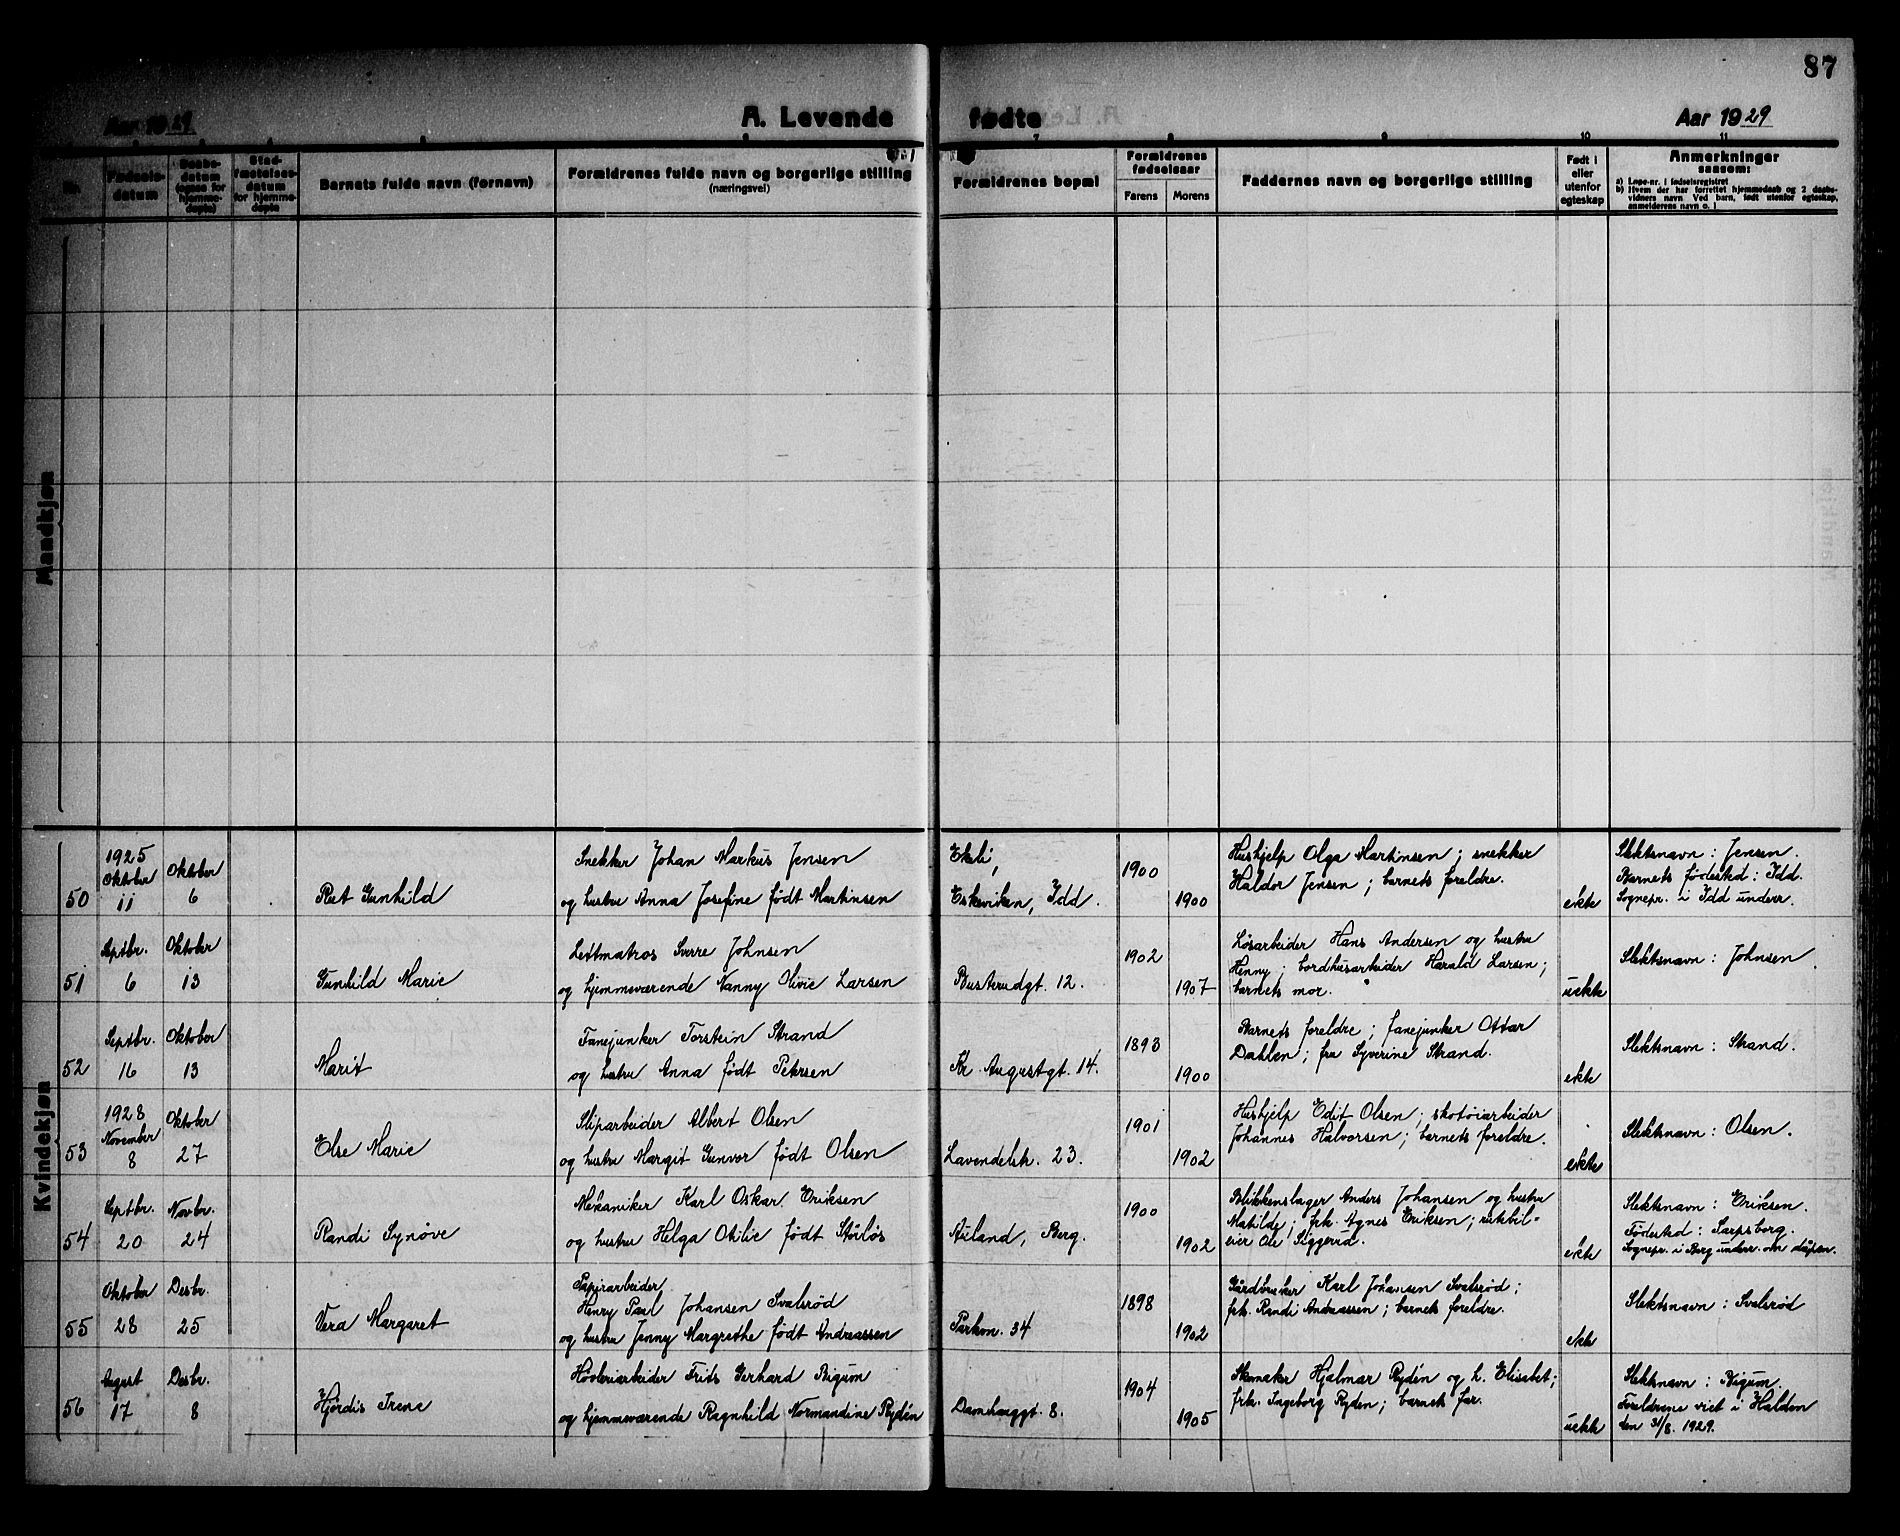 87
Aar 1929
A. Levende fødte
Aar 1929
7 8 9 10 11
Nr.
Fødsels-
datum
Daabs-
datum
(ogsaa for
hjemme-
døpte)
Stad-
fæstelses-
datum
for hjemme-
døpte
Barnets fulde navn (fornavn)
Forældrenes fulde navn og borgerlige stilling
(næringsvei)
Forældrenes bopæl
Forældrenes
fødselsaar
Farens Morens
Faddernes navn og borgerlige stilling
Født i
eller
utenfor
egteskap
Anmerkninger
saasom:
a) Løpe-nr. i fødselsregistret
b) Hvem der har forrettet hjemmedaab og 2 daabs-
vidners navn Ved barn, født utenfor egteskap,
anmelderens navn o. l
Mandkjøn
Kvindekjøn
50
1925
Oktober
11
Oktober
6
Gunhild
Snekker Johan Markus Jensen
og hustru Anna Josefine født Martinsen
Ekeli,
Eskeviken, Idd.
1900
1900
Hushjelp Olga Martinsen; snekker
Haldor Jensen; barnets foreldre.
ekte
Slektsnavn: Jensen.
Barnets fødested: Idd.
Sognepr. i Idd underr.
51
Septbr.
6
Oktober
13
Gunhild Marie
Lettmatros Sverre Johnsen
og hjemmeværende Nanny Olivie Larsen
Busterudgt. 12.
1902
1907
Løsarbeider Hans Andersen og hustru
Henny; bordhusarbeider Harald Larsen;
barnets mor.
uekte
Slektsnavn: Johnsen
52
Septbr.
16
Oktober
13
Marit
Fanejunker Torstein Strand
og hustru Anna født Petersen
Kr. Augustgt. 14.
1893
1900
Barnets foreldre; fanejunker Ottar
Dahlen; fru Syverine Strand.
ekte
Slektsnavn: Strand.
53
1928
November
8
Oktober
27
Else Marie
Sliparbeider Albert Olsen
og hustru Margit Gunvor født Olsen
Lavendelstr. 23.
1901
1902
Hushjelp Edit Olsen; skotøiarbeider
Johannes Halvorsen; barnets foreldre.
ekte
Slektsnavn: Olsen.
54
Septbr.
20
Novbr.
24
Randi Synøve
Mekaniker Karl Oskar Eriksen
og hustru Helga Otilie født
Berg.
1900
1902
Blikkenslager Anders Johansen og hustru
Matilde; frk. Agnes Eriksen; rutebil-
eier Ole Siggerud.
ekte
Slektsnavn: Eriksen.
Fødested: Sarpsborg.
Sognepr. i Berg underr. om dåpen.
55
Oktober
28
Desbr.
25
Vera Margaret
Papirarbeider
Henry Paul Johansen Svalsrød
og hustru Jenny Margrethe født Andreassen
Parkvn. 34
1898
1902
Gårdbruker Karl Johansen Svalsrød;
frk. Randi Andreassen; barnets foreldre.
ekte
Slektsnavn: Svalsrød
56
August
17
Desbr.
8
Hjørdis Irene
Høvleriarbeider Frits Gerhard Bigum
og hjemmeværende Ragnhild Normandine Rydén
Damhauggt. 8.
1904
1905
Skomaker Hjalmar Rydén og h. Elisabet;
frk. Ingeborg Ryden; barnets far.
uekte
Slektsnavn: Bigum.
Foreldrene viet i Halden
den 31/8. 1929.